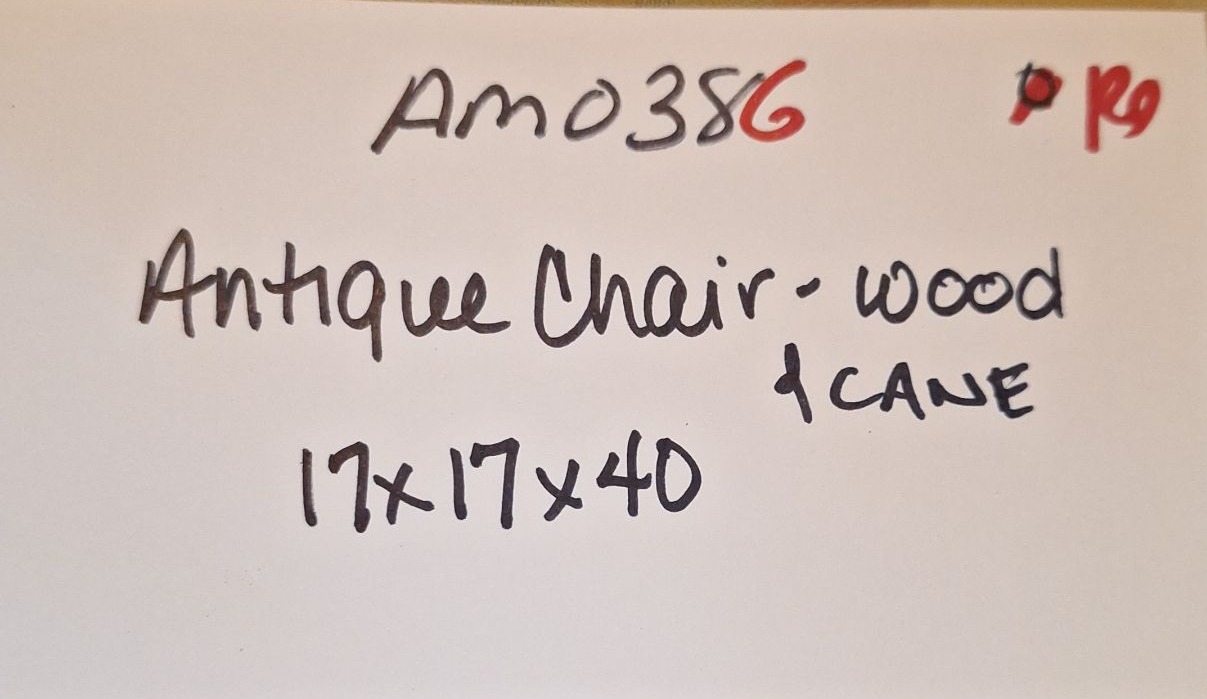 AM0386
Antique Chair - wood
& CANE
17x17x40